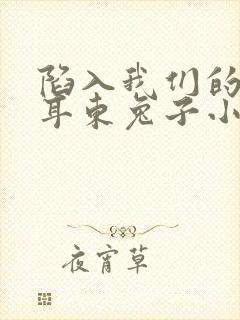 陷入我们的
耳东兔子小
夜宵草